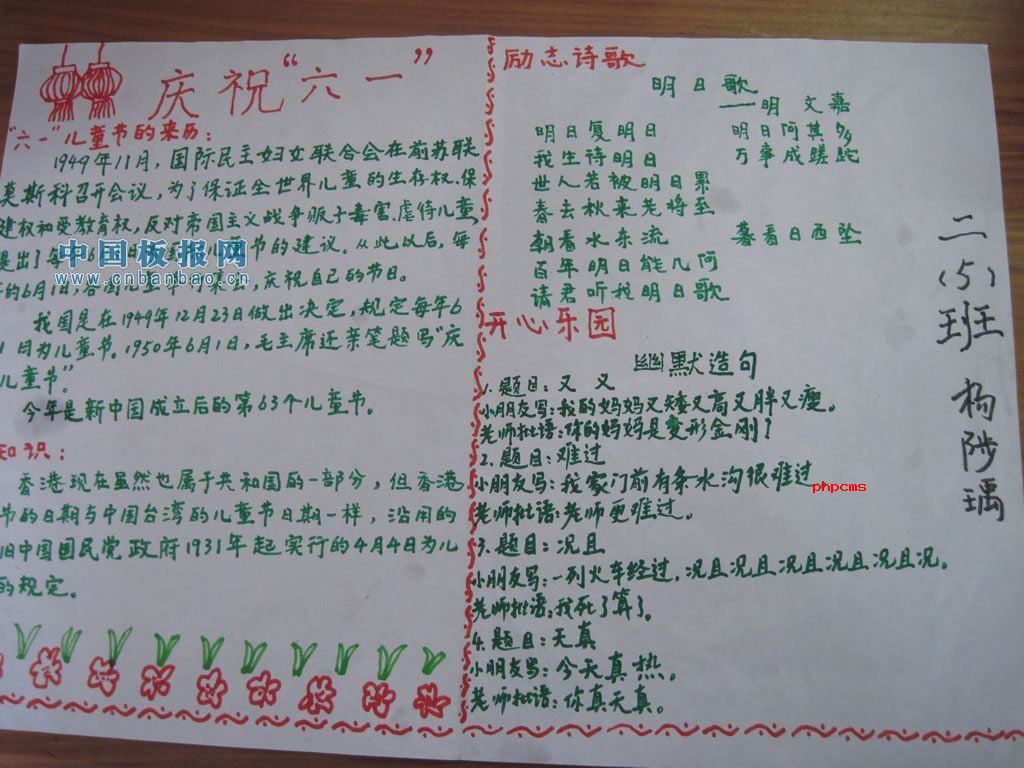 庆祝“六一”
“六一”儿童节的来历：
1949年11月，国际民主妇女联合会在前苏联
莫斯科召开会议，为了保证全世界儿童的生存权.保
健权和受教育权，反对帝国主义战争贩子毒害.虐待儿童，
提出了每 6 节的建议。从此以后，每
的6月1日，各国儿童 集会，庆祝自己的节日。
我国是在1949年12月23日做出决定，规定每年6
1日为儿童节。1950年6月1日，毛主席还亲笔题写“庆
儿童节”。
今年是新中国成立后的第63个儿童节。
知识：
香港现在虽然也属于共和国的一部分，但香港
节的日期与中国台湾的儿童节日期一样，沿用的
旧中国国民党政府1931年起实行的4月4日为儿
的规定。
中国板报网
www.cnbanbao.cn
励志诗歌
明日歌
——明 文嘉
明日复明日 明日何其多
我生诗明日 万事成蹉跎
世人若被明日累
春去秋来老将至
朝看水东流 暮看日西坠
百年明日能几何
请君听我明日歌
开心乐园
幽默造句
1.题目：又 又
小朋友写：我的妈妈又矮又高又胖又瘦。
老师批语：你的妈妈是变形金刚？
2.题目：难过
小朋友写：我家门前有条水沟很难过
phpcms
老师批语：老师更难过。
3.题目：况且
小朋友写：一列火车经过，况且况且况且况且况且况。
老师批语：我死了算了。
4.题目：天真
小朋友写：今天真热。
老师批语：你真天真。
二(5)班 杨陟瑀